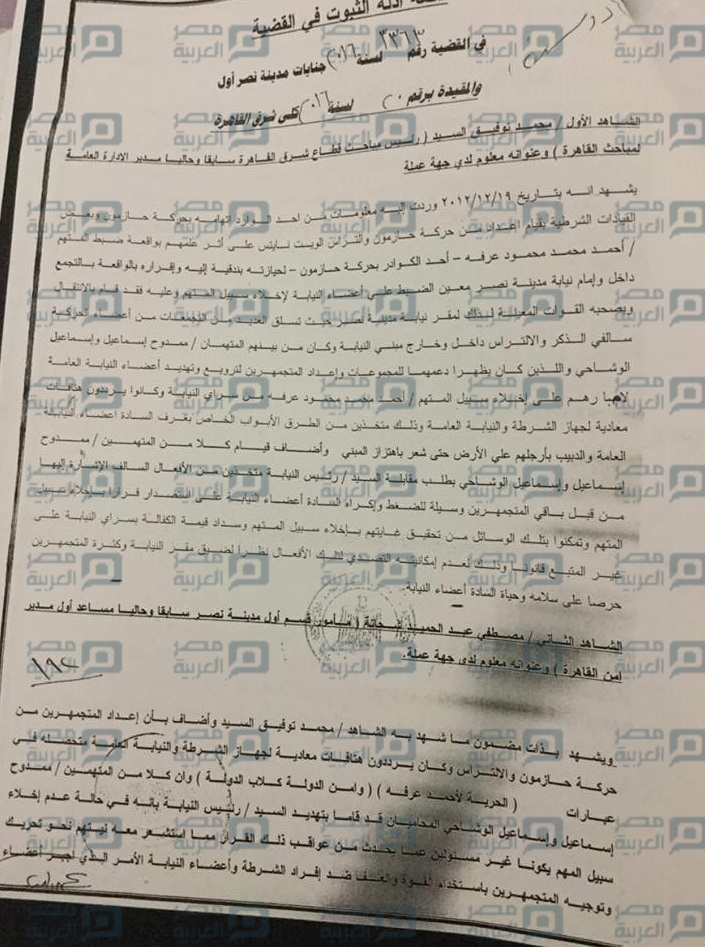 أدلة الثبوت في القضية
في القضية رقم ٣٣٦٣ لسنة ٢٠١٦ جنايات مدينة نصر أول
والمقيدة برقم لسنة ٢٠١٦ كلى شرق القاهرة
الشاهد الأول / محمد توفيق السيد ( رئيس مباحث قطاع شرق القاهرة سابقا وحاليا مدير الادارة العامة
لمباحث القاهرة ) وعنوانه معلوم لدي جهة عملة
يشهد انه بتاريخ ٢٠١٢/١٢/١٩ وردت إليه معلومات من احد الوارد اتهامه بحركة حازمون وبعض
القيادات الشرطية بقيام اعداد من حركة حازمون والتراس الويت نايتس على أثر علمهم بواقعة ضبط المتهم
/ أحمد محمد محمود عرفه – أحد الكوادر بحركة حازمون – لحيازته بندقية إليه وإقراره بالواقعة بالتجمع
داخل وإمام نيابة مدينة نصر معين الضبط علي أعضاء النيابة لإخلاء سبيل المتهم وعليه فقد قام بالانتقال
وبصحبه القوات المعينة لذلك لمقر نيابة مدينة نصر حيث تسلق العديد من التجمعات من أعضاء الحركة
سالفي الذكر والالتراس داخل وخارج مبني النيابة وكان من بينهم المتهمان / ممدوح إسماعيل وإسماعيل
الوشاحي واللذين كان يظهرا دعمهما للمجموعات وإعداد المتجمهرين لترويع وتهديد أعضاء النيابة العامة
على إخلاء سبيل المتهم / أحمد محمد محمود عرفه من سراي النيابة وكانوا يرددون هتافات
معادية لجهاز الشرطة والنيابة العامة وذلك متخذين من الطرق الأبواب الخاص بغرف السادة اعضاء النيابة
العامة والدبيب بأرجلهم علي الأرض حتى شعر باهتزاز المبني وأضاف قيام كلا من المتهمين / ممدوح
إسماعيل وإسماعيل الوشاحي بطلب مقابلة السيد / رئيس النيابة متخذين من الأفعال السالف الإشارة إليها
من قبل باقي المتجمهرين وسيلة للضغط وإكراه السادة أعضاء النيابة على استصدار قرارا بإخلاء سبيل
المتهم وتمكنوا بتلك الوسائل من تحقيق غايتهم بإخلاء سبيل المتهم وسداد قيمة الكفالة بسراي النيابة على
غير المتبع قانونا وذلك لعدم إمكانيته التصدي لتلك الأفعال نظرا لضيق مقر النيابة وكثرة المتجمهرين
حرصا على سلامه وحياة السادة أعضاء النيابة.
الشاهد الثاني / مصطفي عبد الحميد شحاتة ( مأمور قسم أول مدينة نصر سابقا وحاليا مساعد أول مدير
امن القاهرة ) وعنوانه معلوم لدي جهة عملة.
ويشهد بذات مضمون ما شهد به الشاهد / محمد توفيق السيد وأضاف بأن إعداد المتجمهرين من
حركة حازمون والالتراس وكان يرددون هتافات معادية لجهاز الشرطة والنيابة العامة متحصله في
عبارات ( الحرية لأحمد عرفه ) ( وامن الدولة كلاب الدولة ) وأن كلا من المتهمين / ممدوح
إسماعيل وإسماعيل الوشاحي المحاميان قد قاما بتهديد السيد / رئيس النيابة بأنه في حالة عدم إخلاء
سبيل المهم يكونا غير مسئولين عما يحدث من عواقب ذلك القرار مما استشعر معه نيتهم نحو تحريك
وتوجيه المتجمهرين باستخدام القوة والعنف ضد إفراد الشرطة وأعضاء النيابة الأمر الذي اجبر اعضاء
مصر العربية